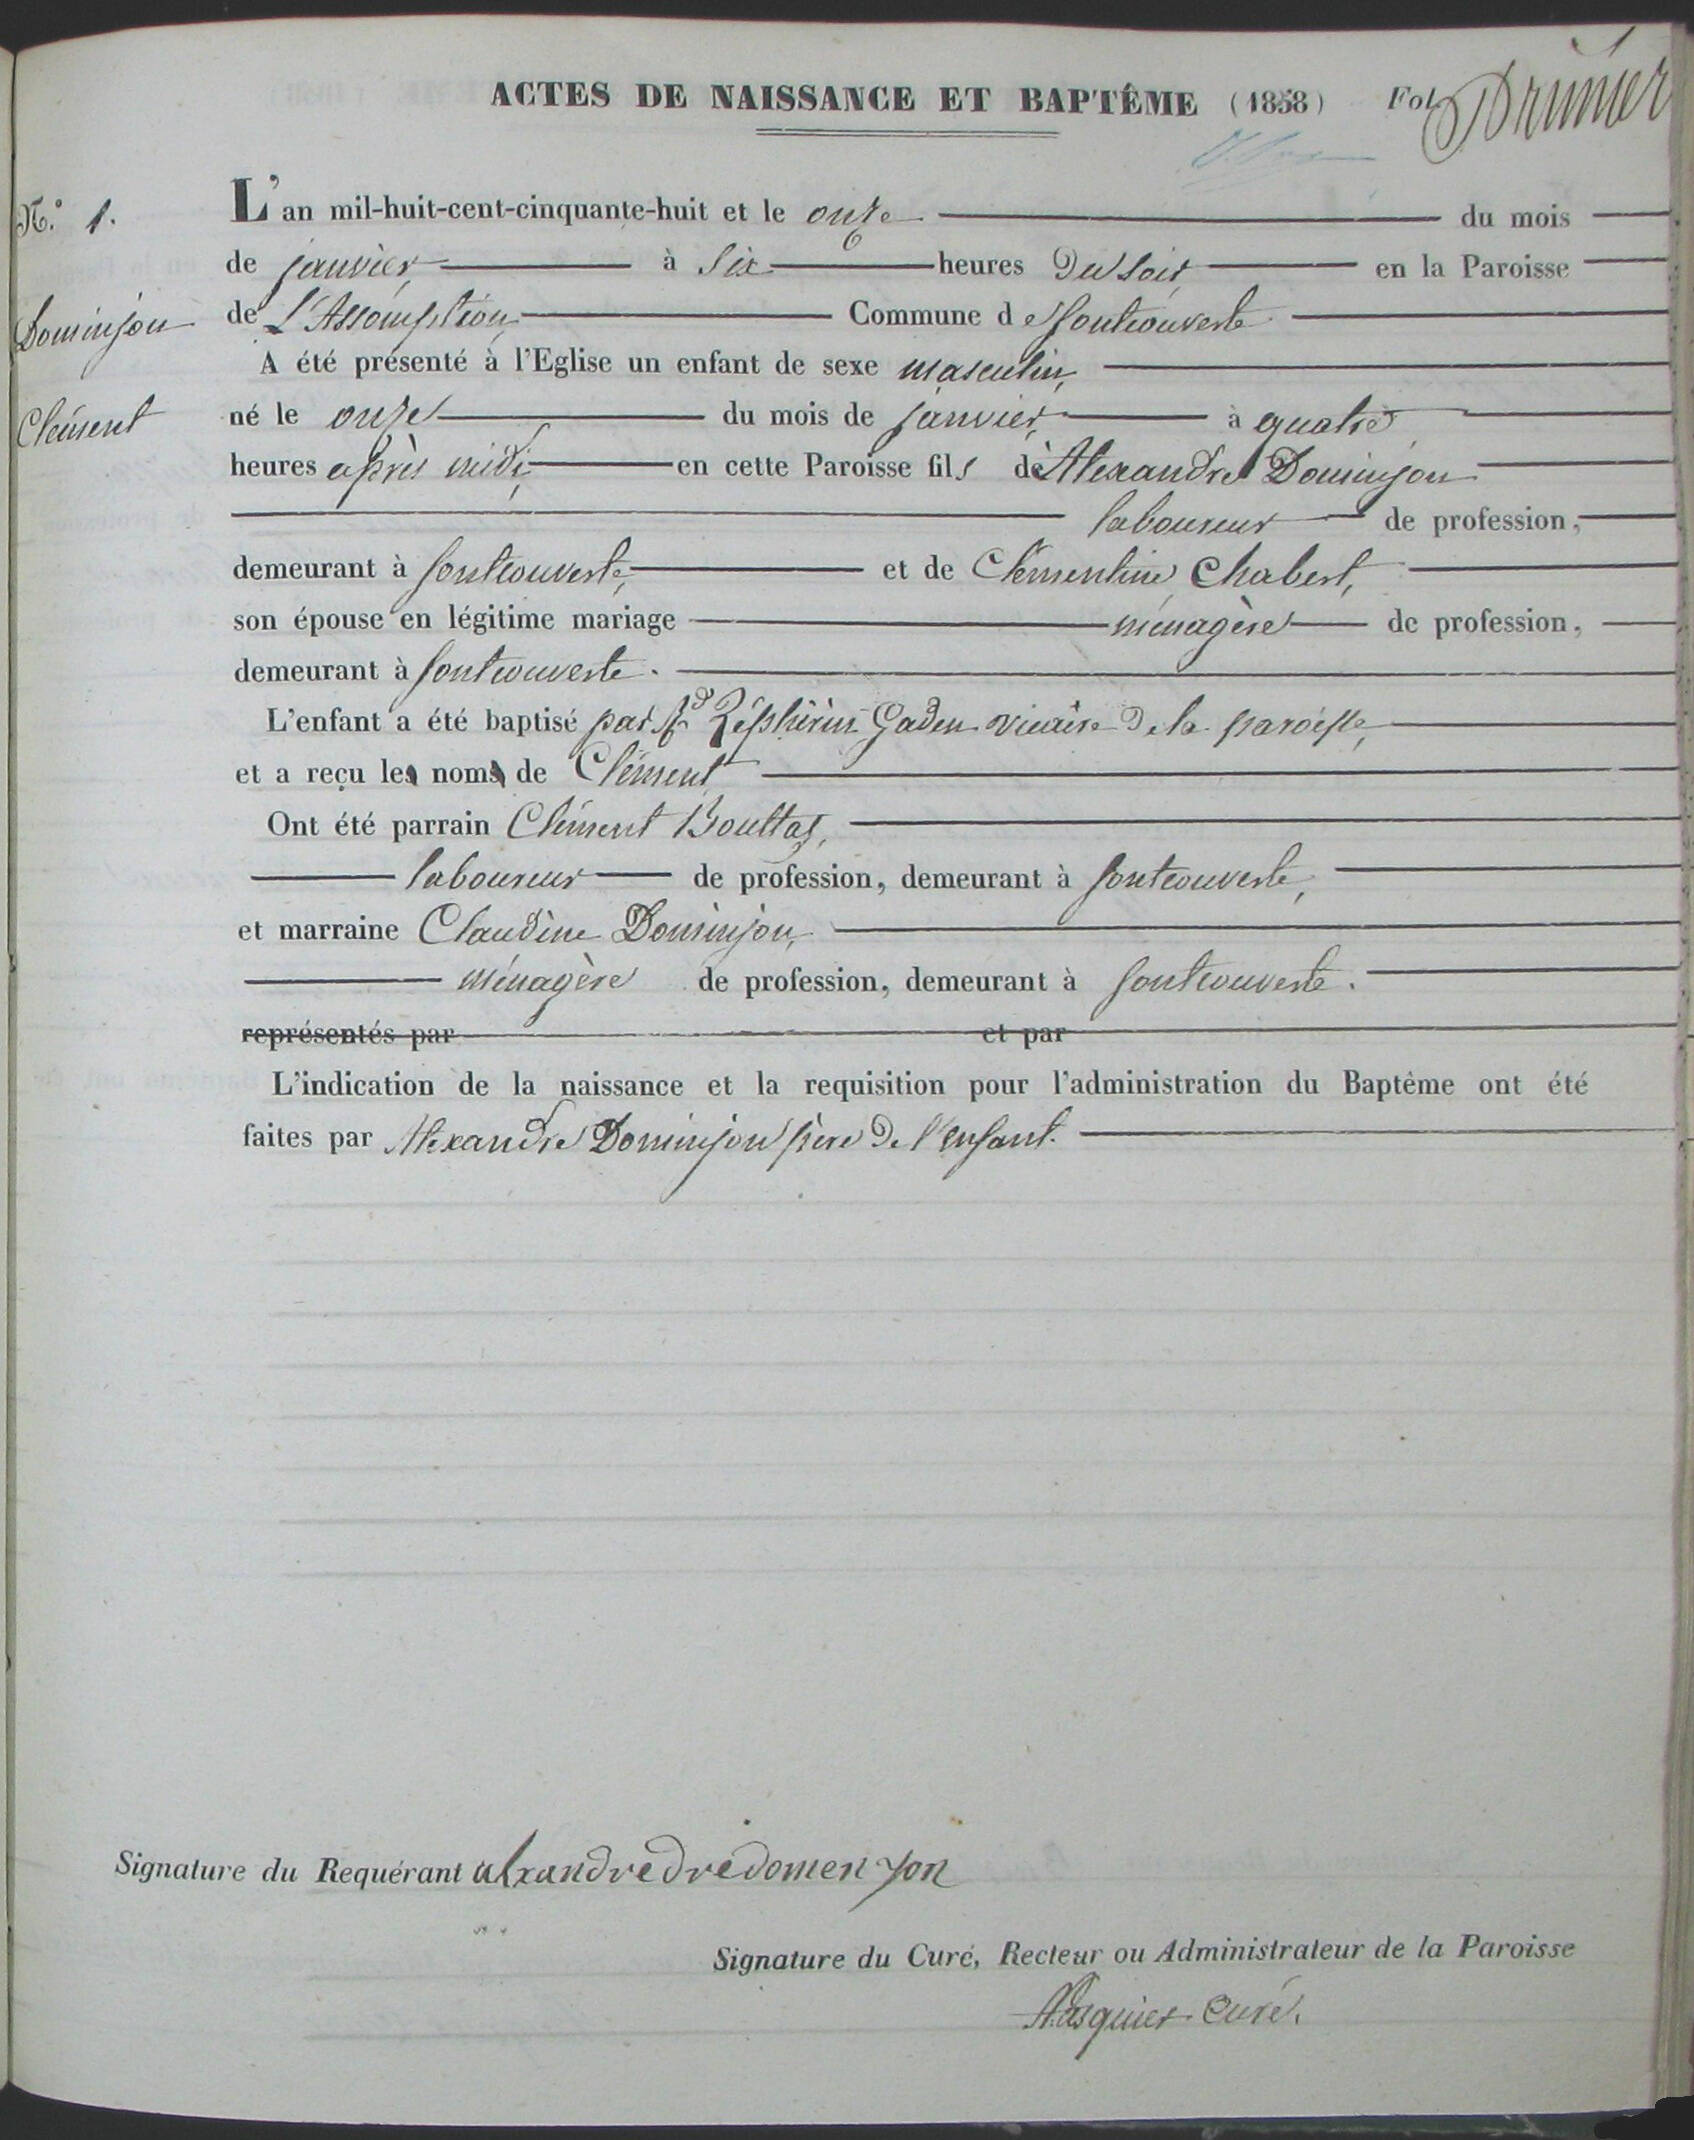 ACTES DE NAISSANCE ET BAPTÊME (1858) Fol. 1
Brunier
N.° 1.
Dominjon
Clément
L'an mil-huit-cent-cinquante-huit et le onze du mois
de janvier, à six heures du soir, en la Paroisse
de L'Assomption, Commune de fontcouverte
A été présenté à l'Eglise un enfant de sexe masculin,
né le onze du mois de janvier, à quatre
heures après midi, en cette Paroisse fils de Alexandre Dominjon
laboureur de profession,
demeurant à fontcouverte, et de Clémentine Chabert,
son épouse en légitime mariage ménagère de profession,
demeurant à fontcouverte.
L'enfant a été baptisé par Rd Zéphirin Gaden vicaire de la paroisse,
et a reçu les noms de Clément
Ont été parrain Clément Bouttaz,
laboureur de profession, demeurant à fontcouverte,
et marraine Claudine Dominjon,
ménagère de profession, demeurant à fontcouverte.
représentés par et par
L'indication de la naissance et la requisition pour l'administration du Baptême ont été
faites par Alexandre Dominjon père de l'enfant.
Signature du Requérant alxandredredomenjon
Signature du Curé, Recteur ou Administrateur de la Paroisse
Pasquier Curé.